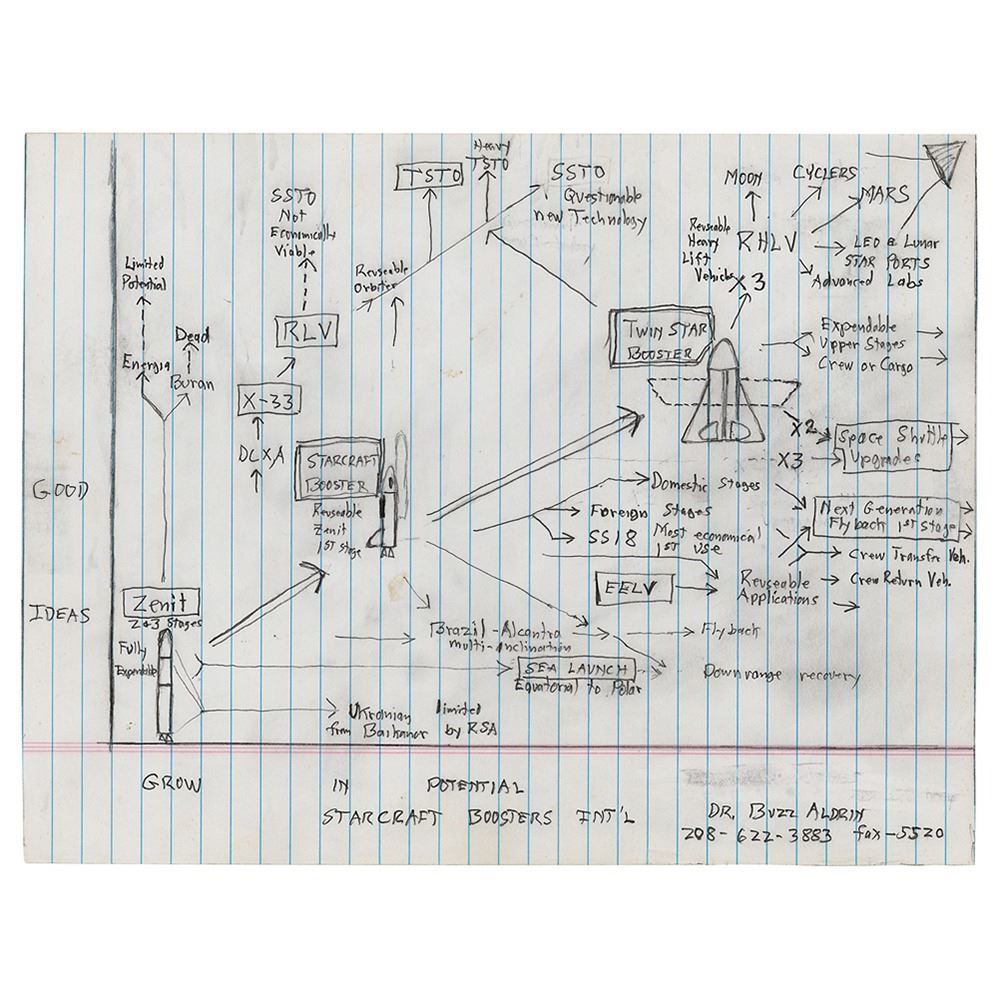 Heavy
TSTO
TSTO
SSTO
Questionable
new Technology
MOON
CYCLERS
MARS
SSTO
Not
Economically
Viable
Reuseable
Heavy
Lift
Vehicle
RHLV
X3
LEO & Lunar
STAR PORTS
Advanced Labs
Limited
Potential
Reuseable
Orbiter
Dead
Energia
Buran
RLV
TWIN STAR
BOOSTER
Expendable
Upper Stages
Crew or Cargo
X-33
DCX,A
STARCRAFT
BOOSTER
Reuseable
Zenit
1ST Stage
X2
X3
Space Shuttle
Upgrades
GOOD
Domestic Stages
Foreign Stages
SS18 Most economical
1ST USE
Next Generation
Fly back 1ST Stage
Crew Transfer Veh.
EELV
Reuseable
Applications
Crew Return Veh.
IDEAS
Zenit
2&3 Stages
Fully
Expendable
Brazil-Alcantra
multi-inclination
Flyback
SEA LAUNCH
Equatorial to Polar
Down range recovery
Ukranian limited
from Baikanor by RSA
GROW IN POTENTIAL
STARCRAFT BOOSTERS INT'L
DR. BUZZ ALDRIN
208-622-3883 fax-5520